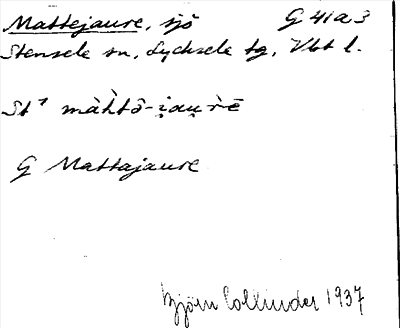 Mattejaure, sjö G 41a3
Stensele sn, Lycksele tg, Vbt l.
St¹ màh̀tō-i̯au̯rē
G Mattajaure
Björn Collinder 1937